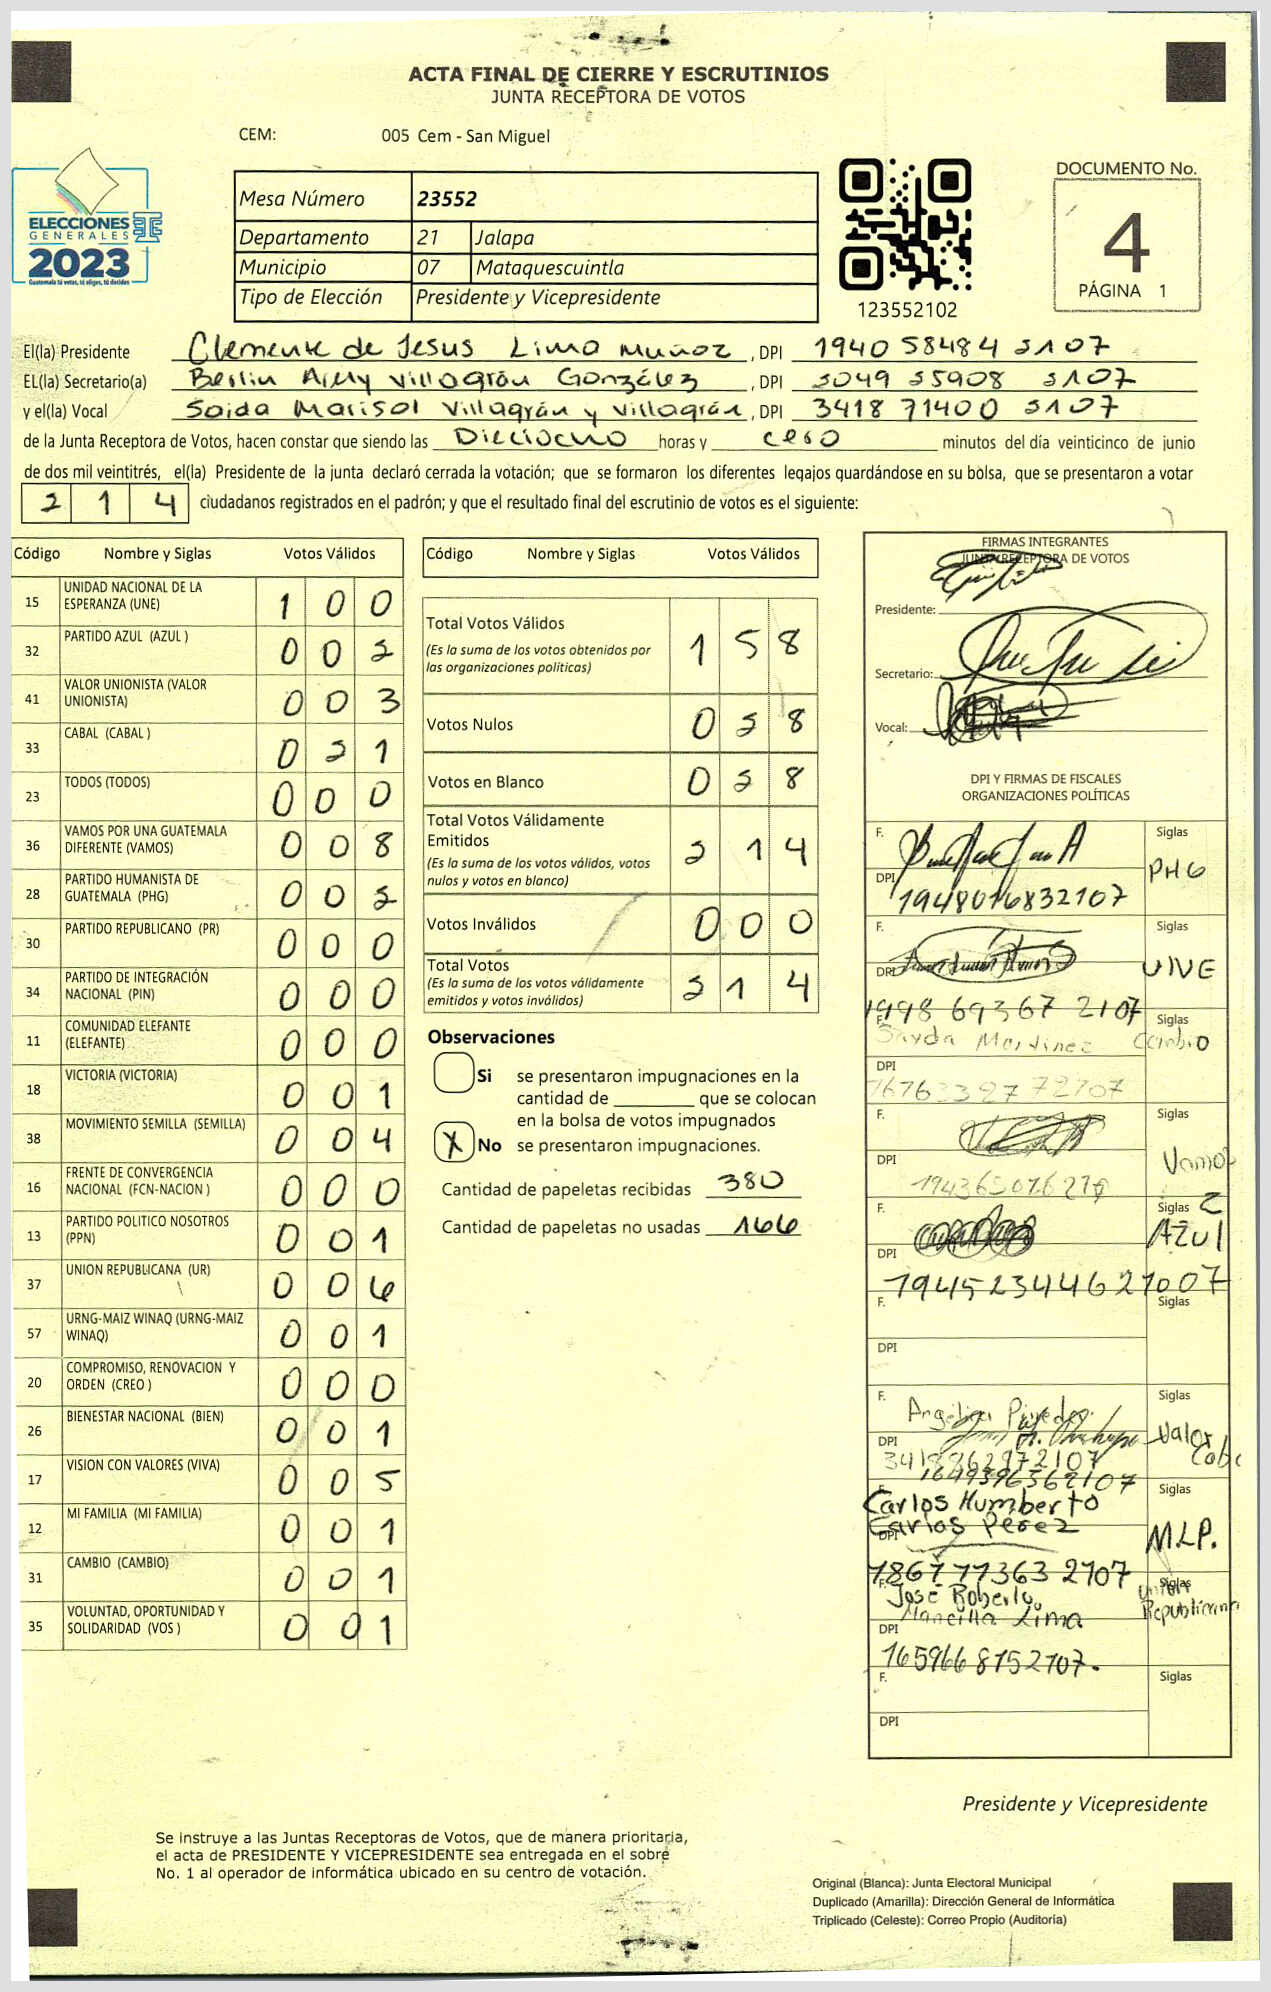 ACTA FINAL DE CIERRE Y ESCRUTINIOS
JUNTA RECEPTORA DE VOTOS
CEM: 005 Cem - San Miguel
ELECCIONES
GENERALES
2023
Guatemala tú votas, tú eliges, tú decides
Mesa Número 23552
Departamento 21 Jalapa
Municipio 07 Mataquescuintla
Tipo de Elección Presidente y Vicepresidente
123552102
DOCUMENTO No.
4
PÁGINA 1
El(la) Presidente Clemente de Jesus Lima Muñoz, DPI 1940 58484 2107
EL(la) Secretario(a) Berlin Arely Villagrán González, DPI 2049 25908 2107
y el(la) Vocal Saida Marisol Villagrán y Villagrán, DPI 3418 71400 2107
de la Junta Receptora de Votos, hacen constar que siendo las Dieciocho horas y cero minutos del día veinticinco de junio
de dos mil veintitrés, el(la) Presidente de la junta declaró cerrada la votación; que se formaron los diferentes legajos quardándose en su bolsa, que se presentaron a votar
2 1 4 ciudadanos registrados en el padrón; y que el resultado final del escrutinio de votos es el siguiente:
Código Nombre y Siglas Votos Válidos
15 UNIDAD NACIONAL DE LA ESPERANZA (UNE) 1 0 0
32 PARTIDO AZUL (AZUL ) 0 0 2
41 VALOR UNIONISTA (VALOR UNIONISTA) 0 0 3
33 CABAL (CABAL ) 0 2 1
23 TODOS (TODOS) 0 0 0
36 VAMOS POR UNA GUATEMALA DIFERENTE (VAMOS) 0 0 8
28 PARTIDO HUMANISTA DE GUATEMALA (PHG) 0 0 2
30 PARTIDO REPUBLICANO (PR) 0 0 0
34 PARTIDO DE INTEGRACIÓN NACIONAL (PIN) 0 0 0
11 COMUNIDAD ELEFANTE (ELEFANTE) 0 0 0
18 VICTORIA (VICTORIA) 0 0 1
38 MOVIMIENTO SEMILLA (SEMILLA) 0 0 4
16 FRENTE DE CONVERGENCIA NACIONAL (FCN-NACION ) 0 0 0
13 PARTIDO POLITICO NOSOTROS (PPN) 0 0 1
37 UNION REPUBLICANA (UR) 0 0 6
57 URNG-MAIZ WINAQ (URNG-MAIZ WINAQ) 0 0 1
20 COMPROMISO, RENOVACION Y ORDEN (CREO ) 0 0 0
26 BIENESTAR NACIONAL (BIEN) 0 0 1
17 VISION CON VALORES (VIVA) 0 0 5
12 MI FAMILIA (MI FAMILIA) 0 0 1
31 CAMBIO (CAMBIO) 0 0 1
35 VOLUNTAD, OPORTUNIDAD Y SOLIDARIDAD (VOS ) 0 0 1
Código Nombre y Siglas Votos Válidos
Total Votos Válidos 1 5 8
(Es la suma de los votos obtenidos por
las organizaciones políticas)
Votos Nulos 0 2 8
Votos en Blanco 0 2 8
Total Votos Válidamente
Emitidos 2 1 4
(Es la suma de los votos válidos, votos
nulos y votos en blanco)
Votos Inválidos 0 0 0
Total Votos 2 1 4
(Es la suma de los votos válidamente
emitidos y votos inválidos)
Observaciones
Si se presentaron impugnaciones en la
cantidad de ________ que se colocan
en la bolsa de votos impugnados
X No se presentaron impugnaciones.
Cantidad de papeletas recibidas 380
Cantidad de papeletas no usadas 166
FIRMAS INTEGRANTES
JUNTA RECEPTORA DE VOTOS
Presidente:
Secretario:
Vocal:
DPI Y FIRMAS DE FISCALES
ORGANIZACIONES POLÍTICAS
F. Siglas PHG
DPI 1948016832107
F. Siglas VIVE
DPI 1998 69367 2107
F. Sayda Martinez Siglas Cambio
DPI
F. Siglas Vamos
DPI
F. Siglas Azul
DPI 1945234462107
F. Siglas
DPI
F. Angelica Siglas Valor
DPI 3418962972107
1649396362107
F. Carlos Humberto Siglas
Carlos Perez M.L.P.
DPI 1867771363 2107
F. José Roberto Siglas union
Mancilla Lima Republicana
DPI 1659668152107.
F. Siglas
DPI
Presidente y Vicepresidente
Se instruye a las Juntas Receptoras de Votos, que de manera prioritaria,
el acta de PRESIDENTE Y VICEPRESIDENTE sea entregada en el sobre
No. 1 al operador de informática ubicado en su centro de votación.
Original (Blanca): Junta Electoral Municipal
Duplicado (Amarilla): Dirección General de Informática
Triplicado (Celeste): Correo Propio (Auditoría)